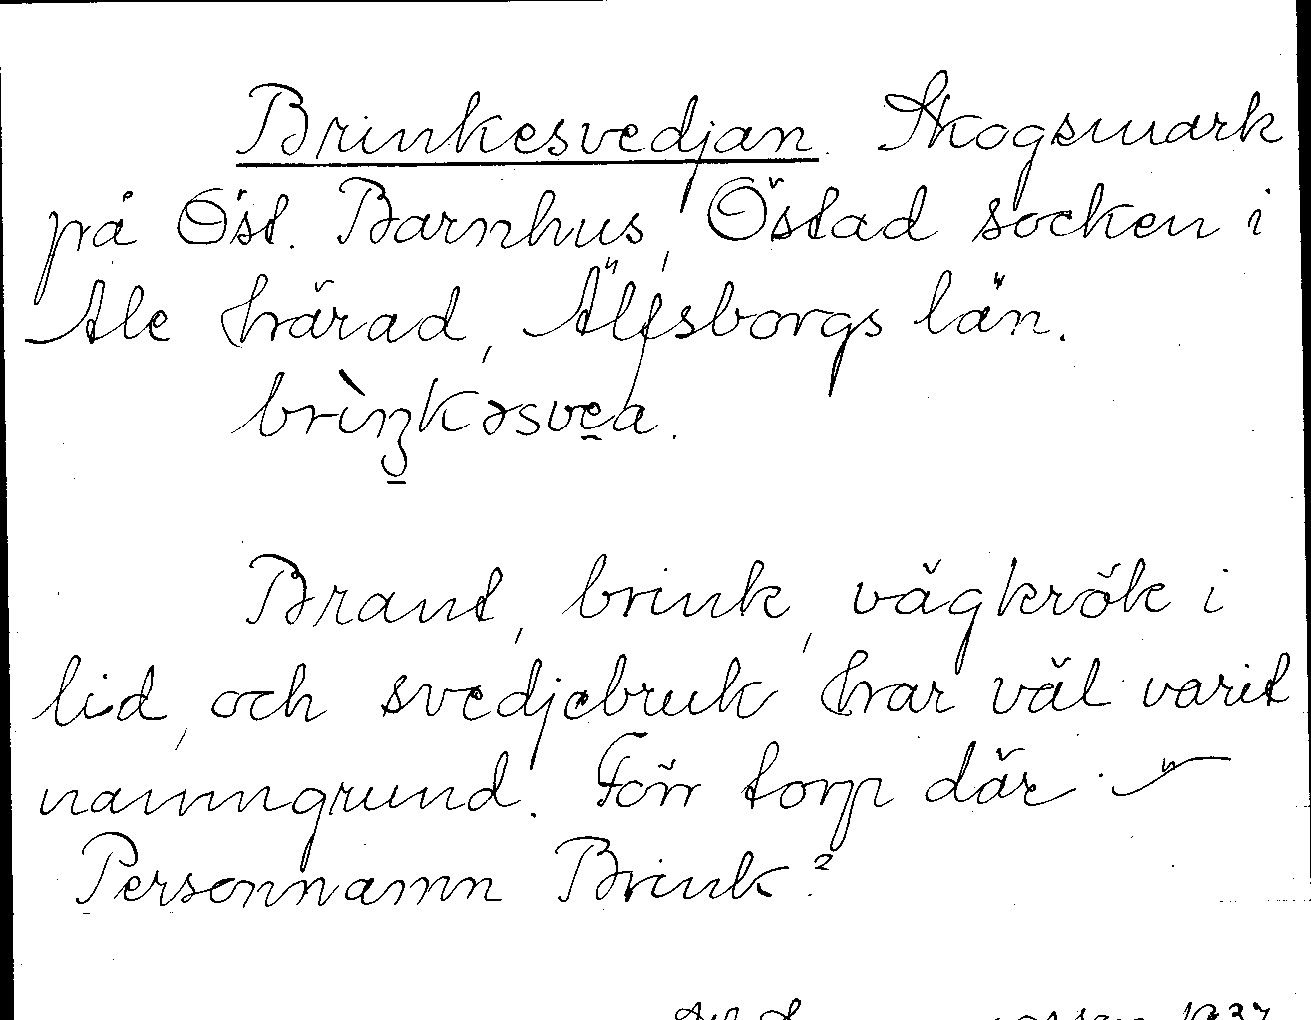 Brinkesvedjan. Skogsmark
på Öst. Barnhus, Östad socken i
Ale härad, Älfsborgs län.
brìŋkəsvea.
Brant, brink, vägkrök i
lid, och svedjebruk har väl varit
namngrund. Förr torp där.
Personnamn Brink?
1937